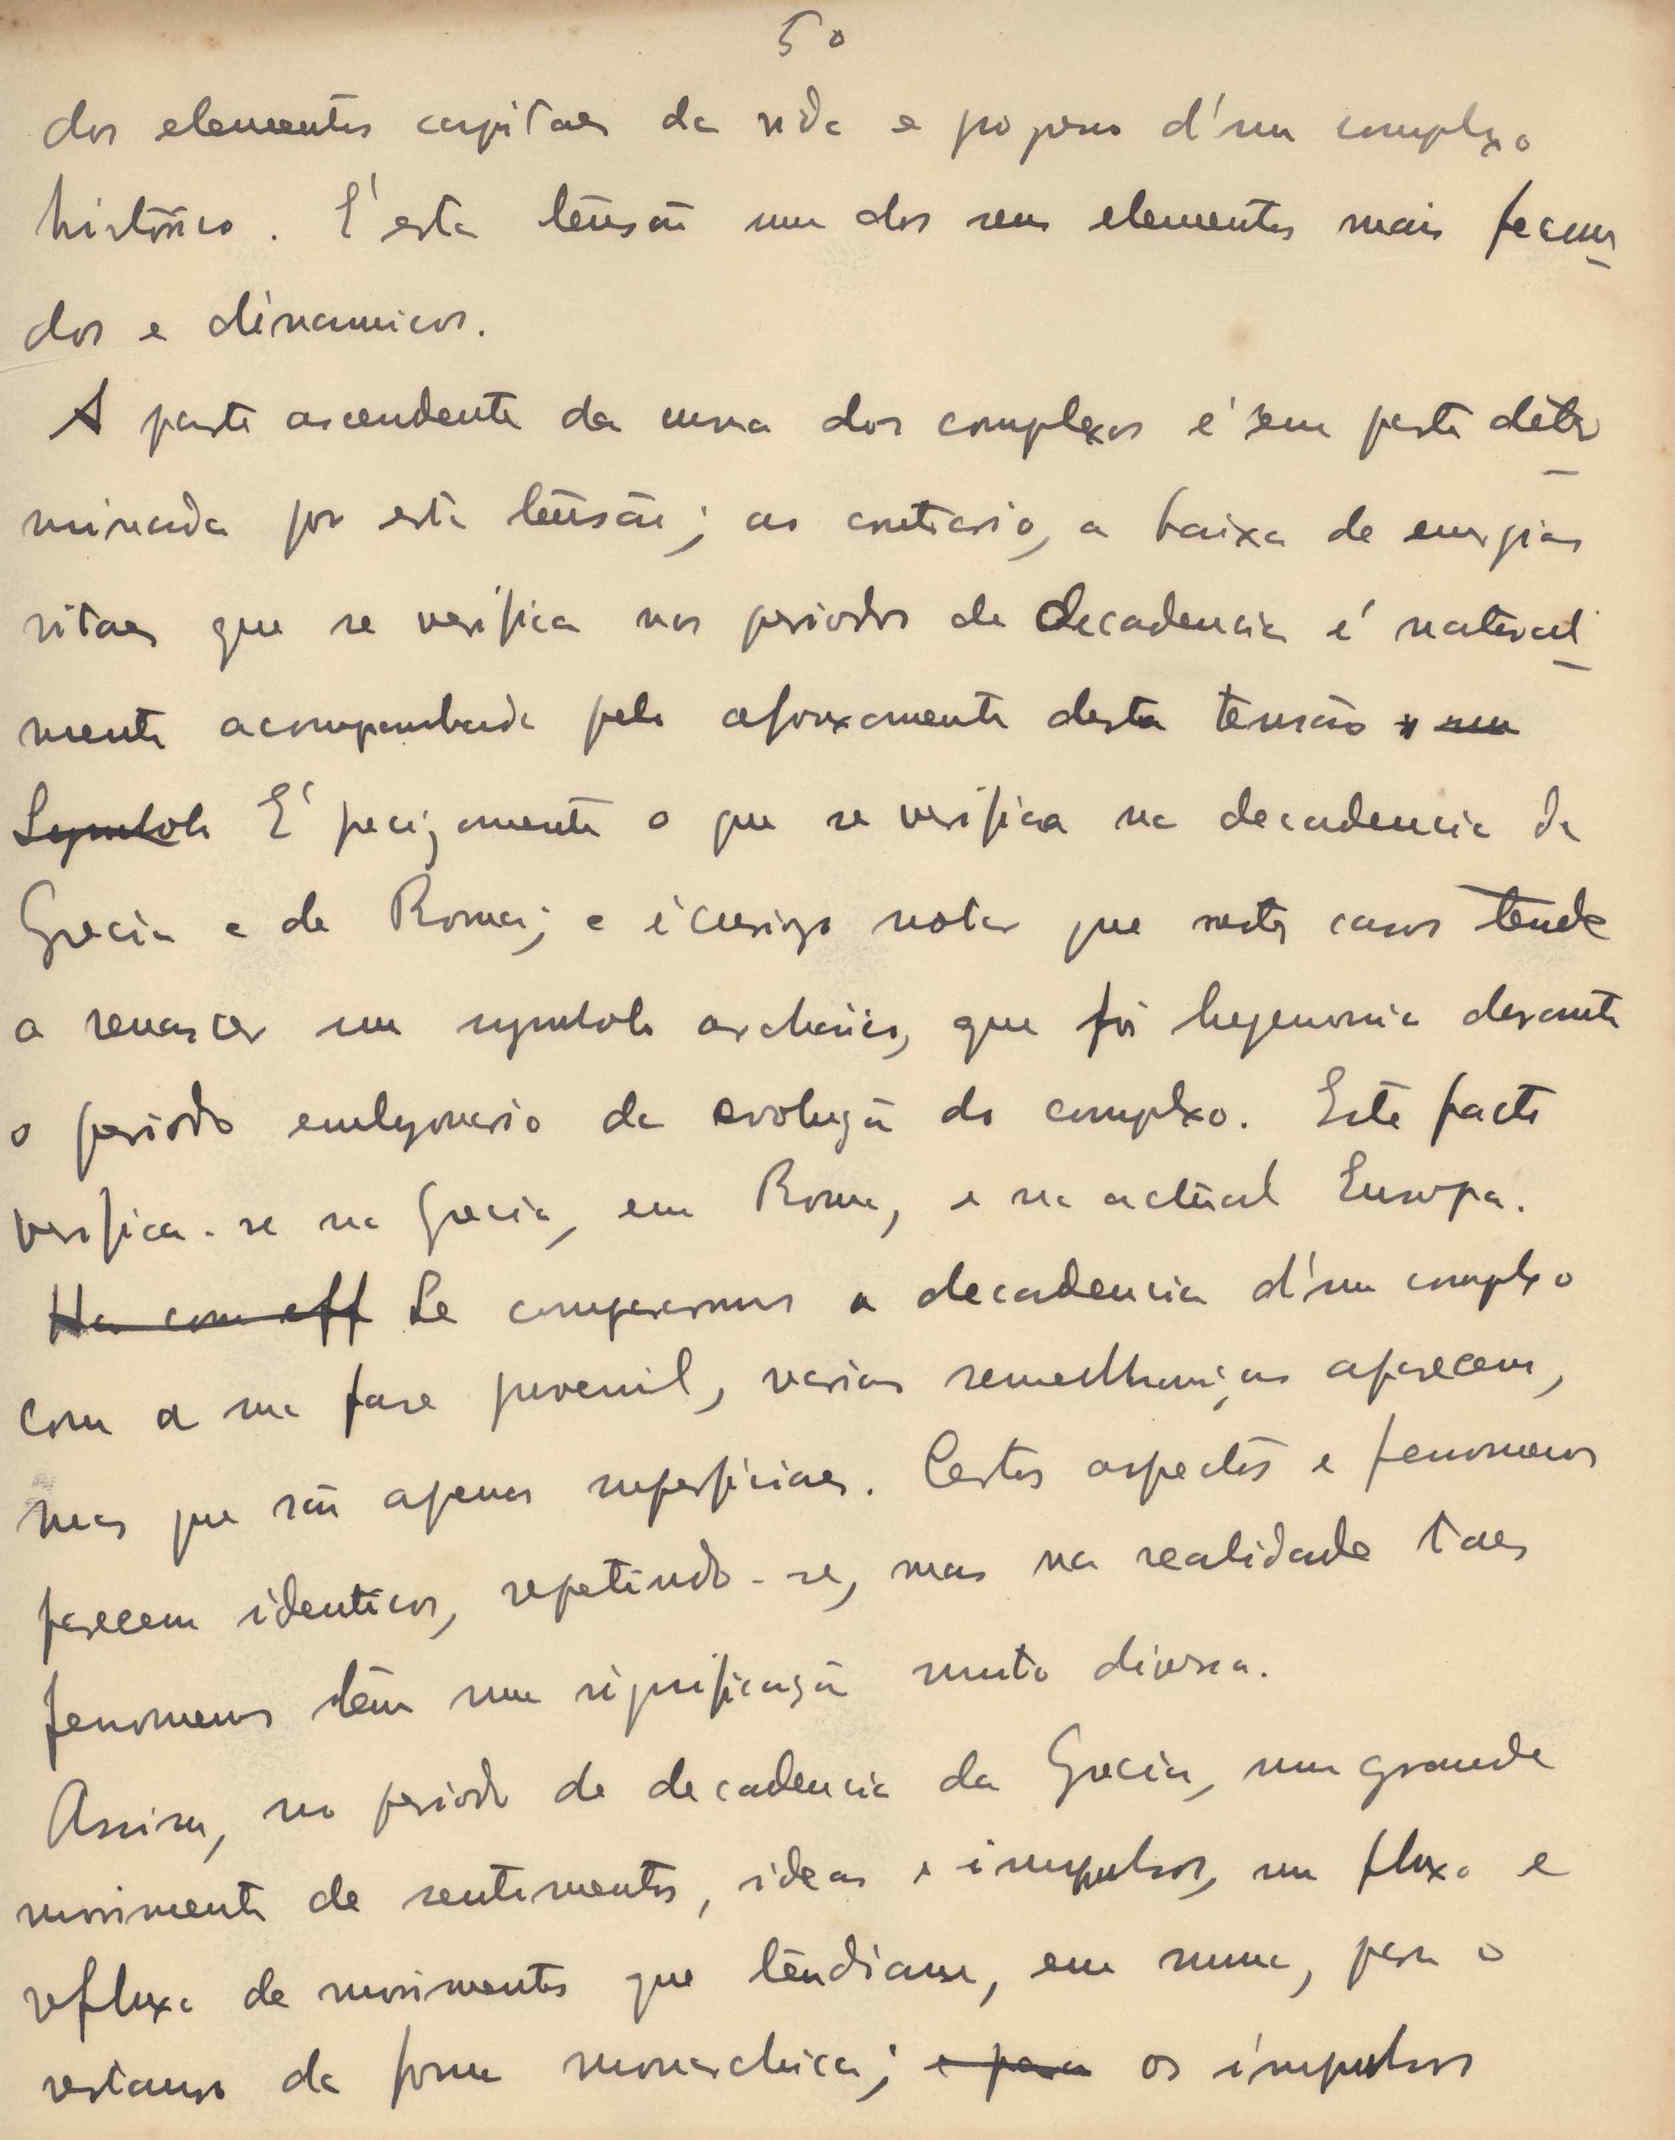 50
dos elementos capitaes da vida e progresso d'um complexo
histórico. É esta tensão um dos seus elementos mais fecun-
dos e dinamicos.
A parte ascendente da curva dos complexos é em parte deter-
minada por esta tensão; ao contrario, a baixa de energias
vitaes que se verifica nos periodos de decadencia é natural-
mente acompanhada pelo afrouxamento desta tensão um
Symbolo É precizamente o que se verifica na decadencia da
Grecia e de Roma; e é curioso notar que nestes casos tende
a renascer um symbolo archaico, que foi hegemonico durante
o periodo embryonario da evolução do complexo. Este facto
verifica-se na Grecia, em Roma, e na actual Europa.
Ha com eff Se compararmos a decadencia d'um complexo
com a sua fase juvenil, varias semelhanças aparecem,
mas que são apenas superficiaes. Certos aspectos e fenomenos
parecem identicos, repetindo-se, mas na realidade taes
fenomenos têm uma significação muito diversa.
Assim, no periodo de decadencia da Grecia, um grande
movimento de sentimentos, ideas e impulsos, um fluxo e
refluxo de movimentos que tendiam, em suma, para o
restauro da forma monarchica; e para os impulsos